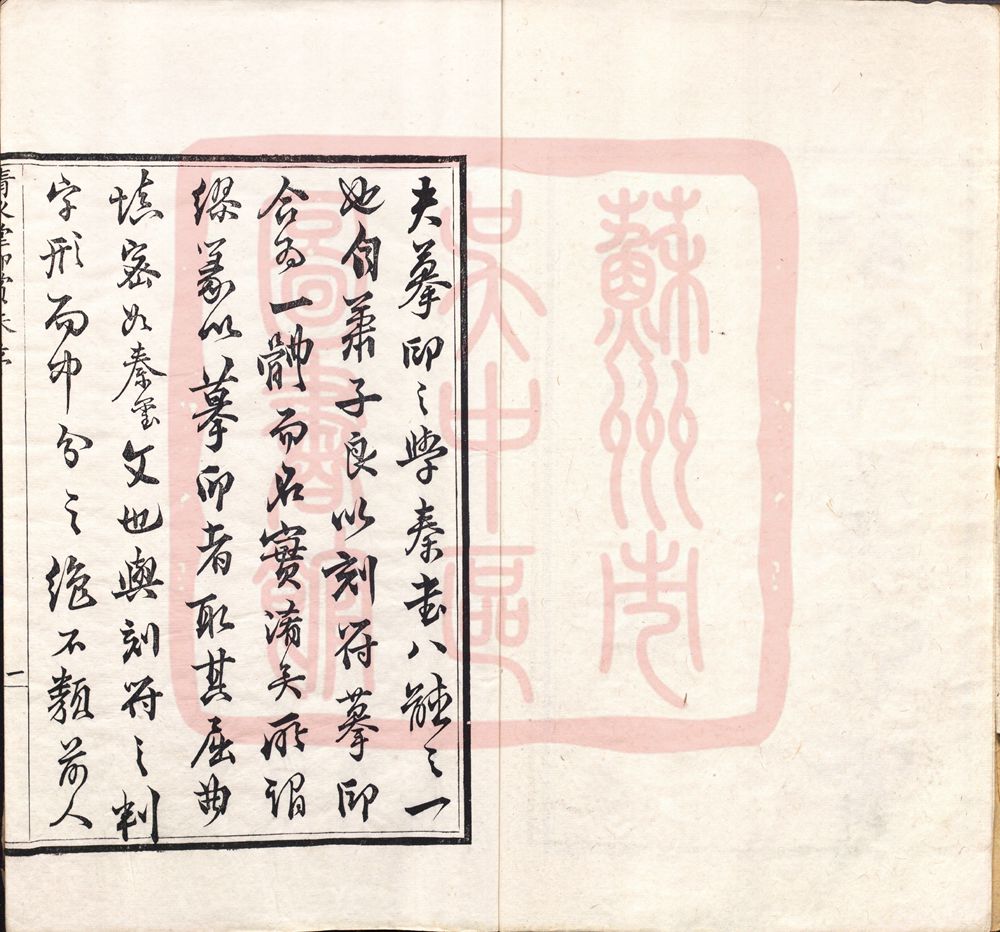 夫摹印之學秦書八體之一
也自蕭子良以刻符摹印
合為一體而名實淆矣所謂
繆篆以摹印者取其屈曲
填密如秦璽文也與刻符之判
字形而中分之絶不類前人
一
蘇州市
吴中區
圖書館